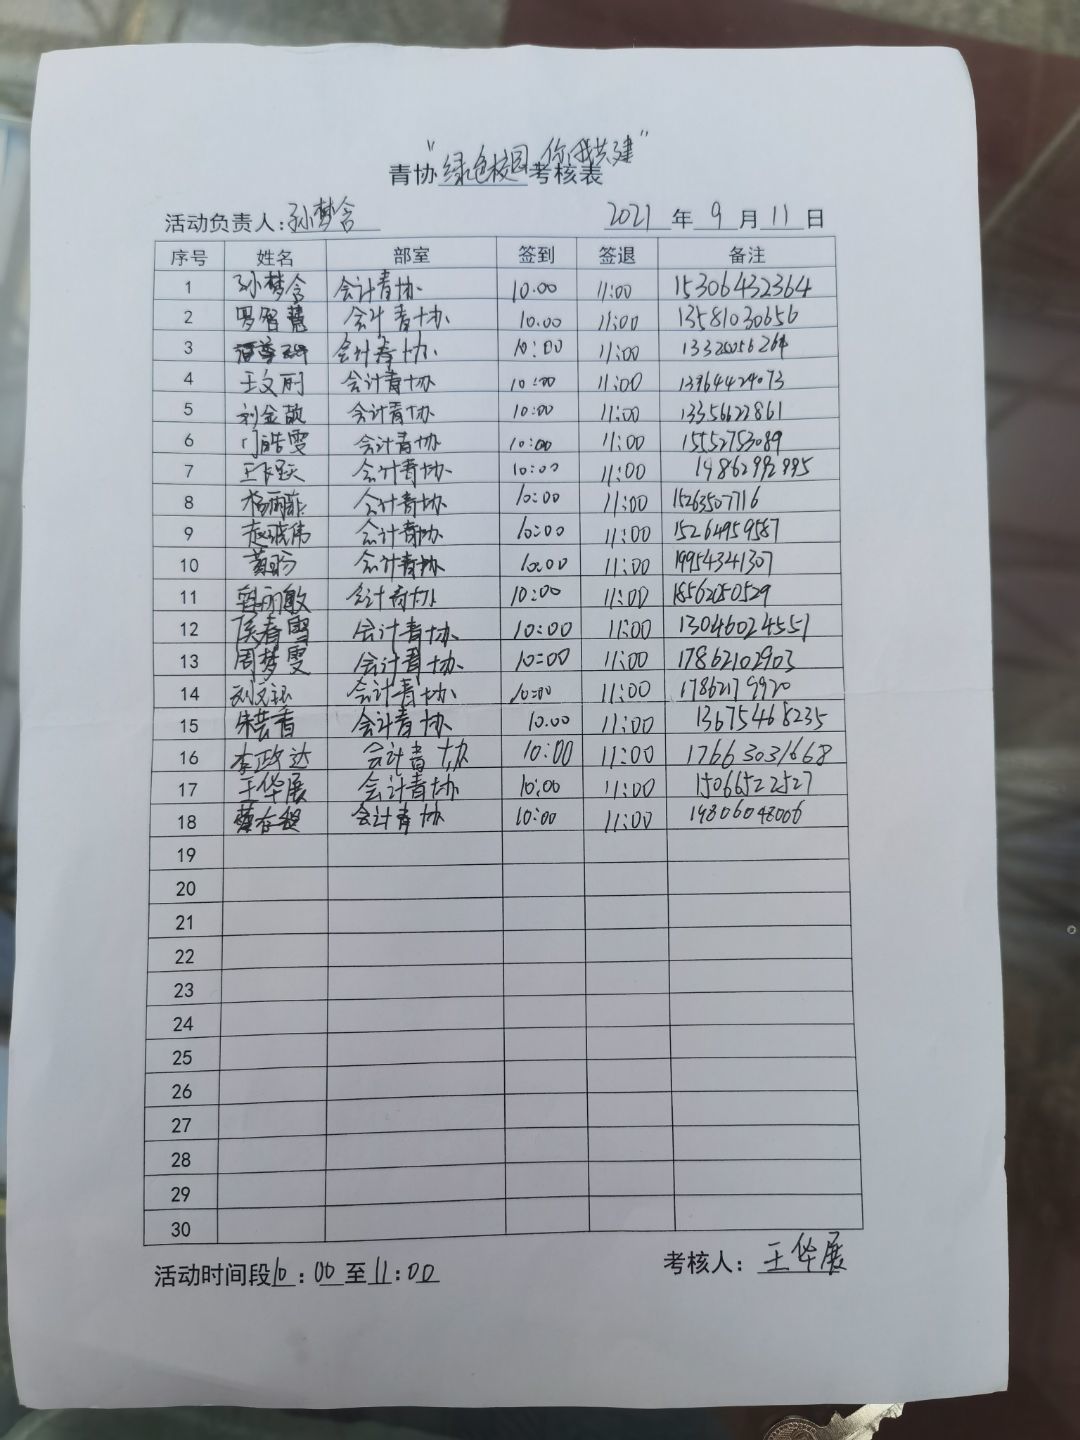 青协"绿色校园 你我共建"考核表
活动负责人:孙梦含 2021年9月11日
序号 姓名 部室 签到 签退 备注
1 孙梦含 会计青协 10.00 11:00 15306432364
2 罗智慧 会计青协 10.00 11:00 13581030656
3 会计青协 10:00 11:00
4 王文丽 会计青协 10:00 11:00 13964424073
5 刘金敏 会计青协 10:00 11:00 13356622861
6 门皓雯 会计青协 10:00 11:00 15552753089
7 会计青协 10:00 11:00
8 杨雨菲 会计青协 10:00 11:00 15263507716
9 会计青协 10:00 11:00 15264959587
10 黄盼 会计青协 10:00 11:00 19954341307
11 会计青协 10:00 11:00 18562050529
12 侯春雪 会计青协 10:00 11:00 13046024551
13 周梦雯 会计青协 10:00 11:00 17862102903
14 会计青协 10:00 11:00 17862179920
15 朱芸香 会计青协 10.00 11:00 13675468235
16 李政达 会计青协 10:00 11:00 17663031668
17 王华展 会计青协 10:00 11:00 15066522527
18 会计青协 10:00 11:00
19
20
21
22
23
24
25
26
27
28
29
30
活动时间段10:00至11:00 考核人:王华展